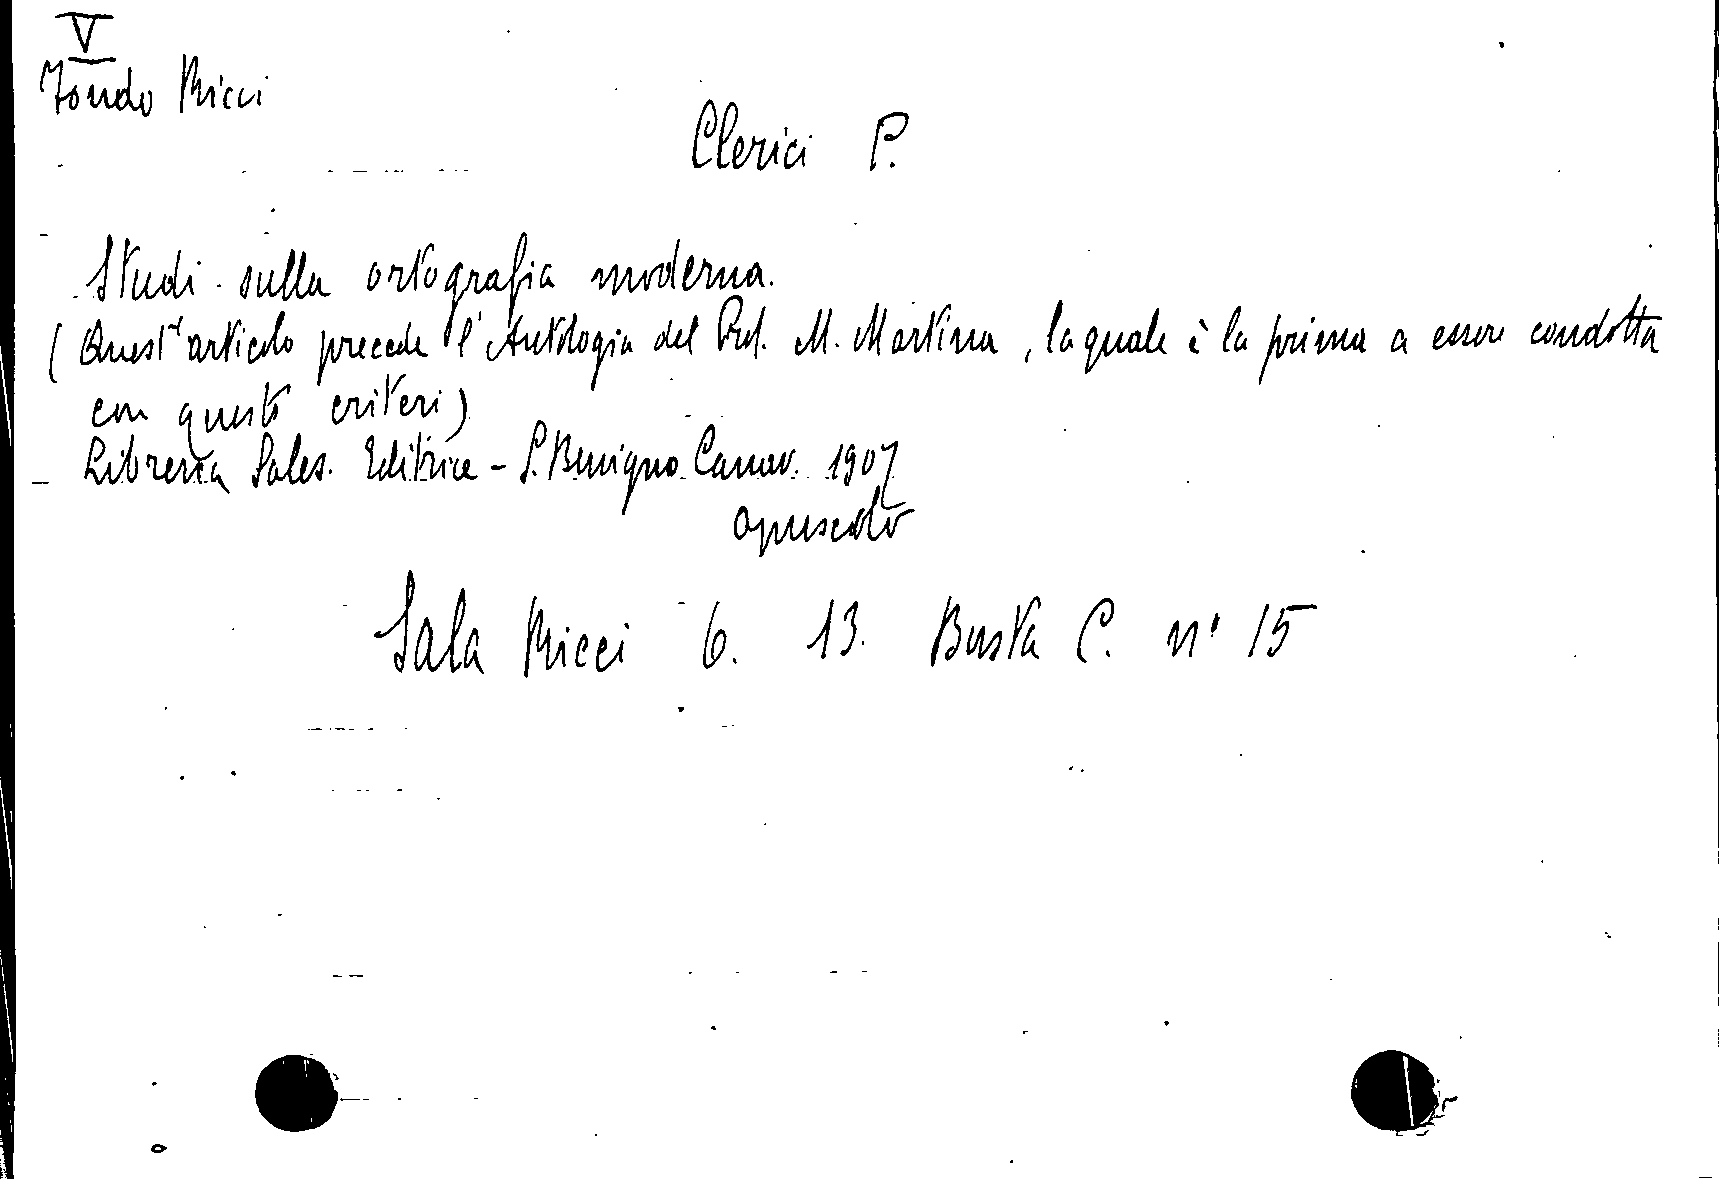 V
Fondo Ricci
Clerici P.
Studi sulla ortografia moderna.
(Quest'articolo precede l'Antologia del Prof. M. Martina, la quale è la prima a essere condotta
con questi criteri)
Libreria Sales. Editrice - S. Benigno Canav. 1907
opuscolo
Sala Ricci 6. 13. Busta C. n° 15